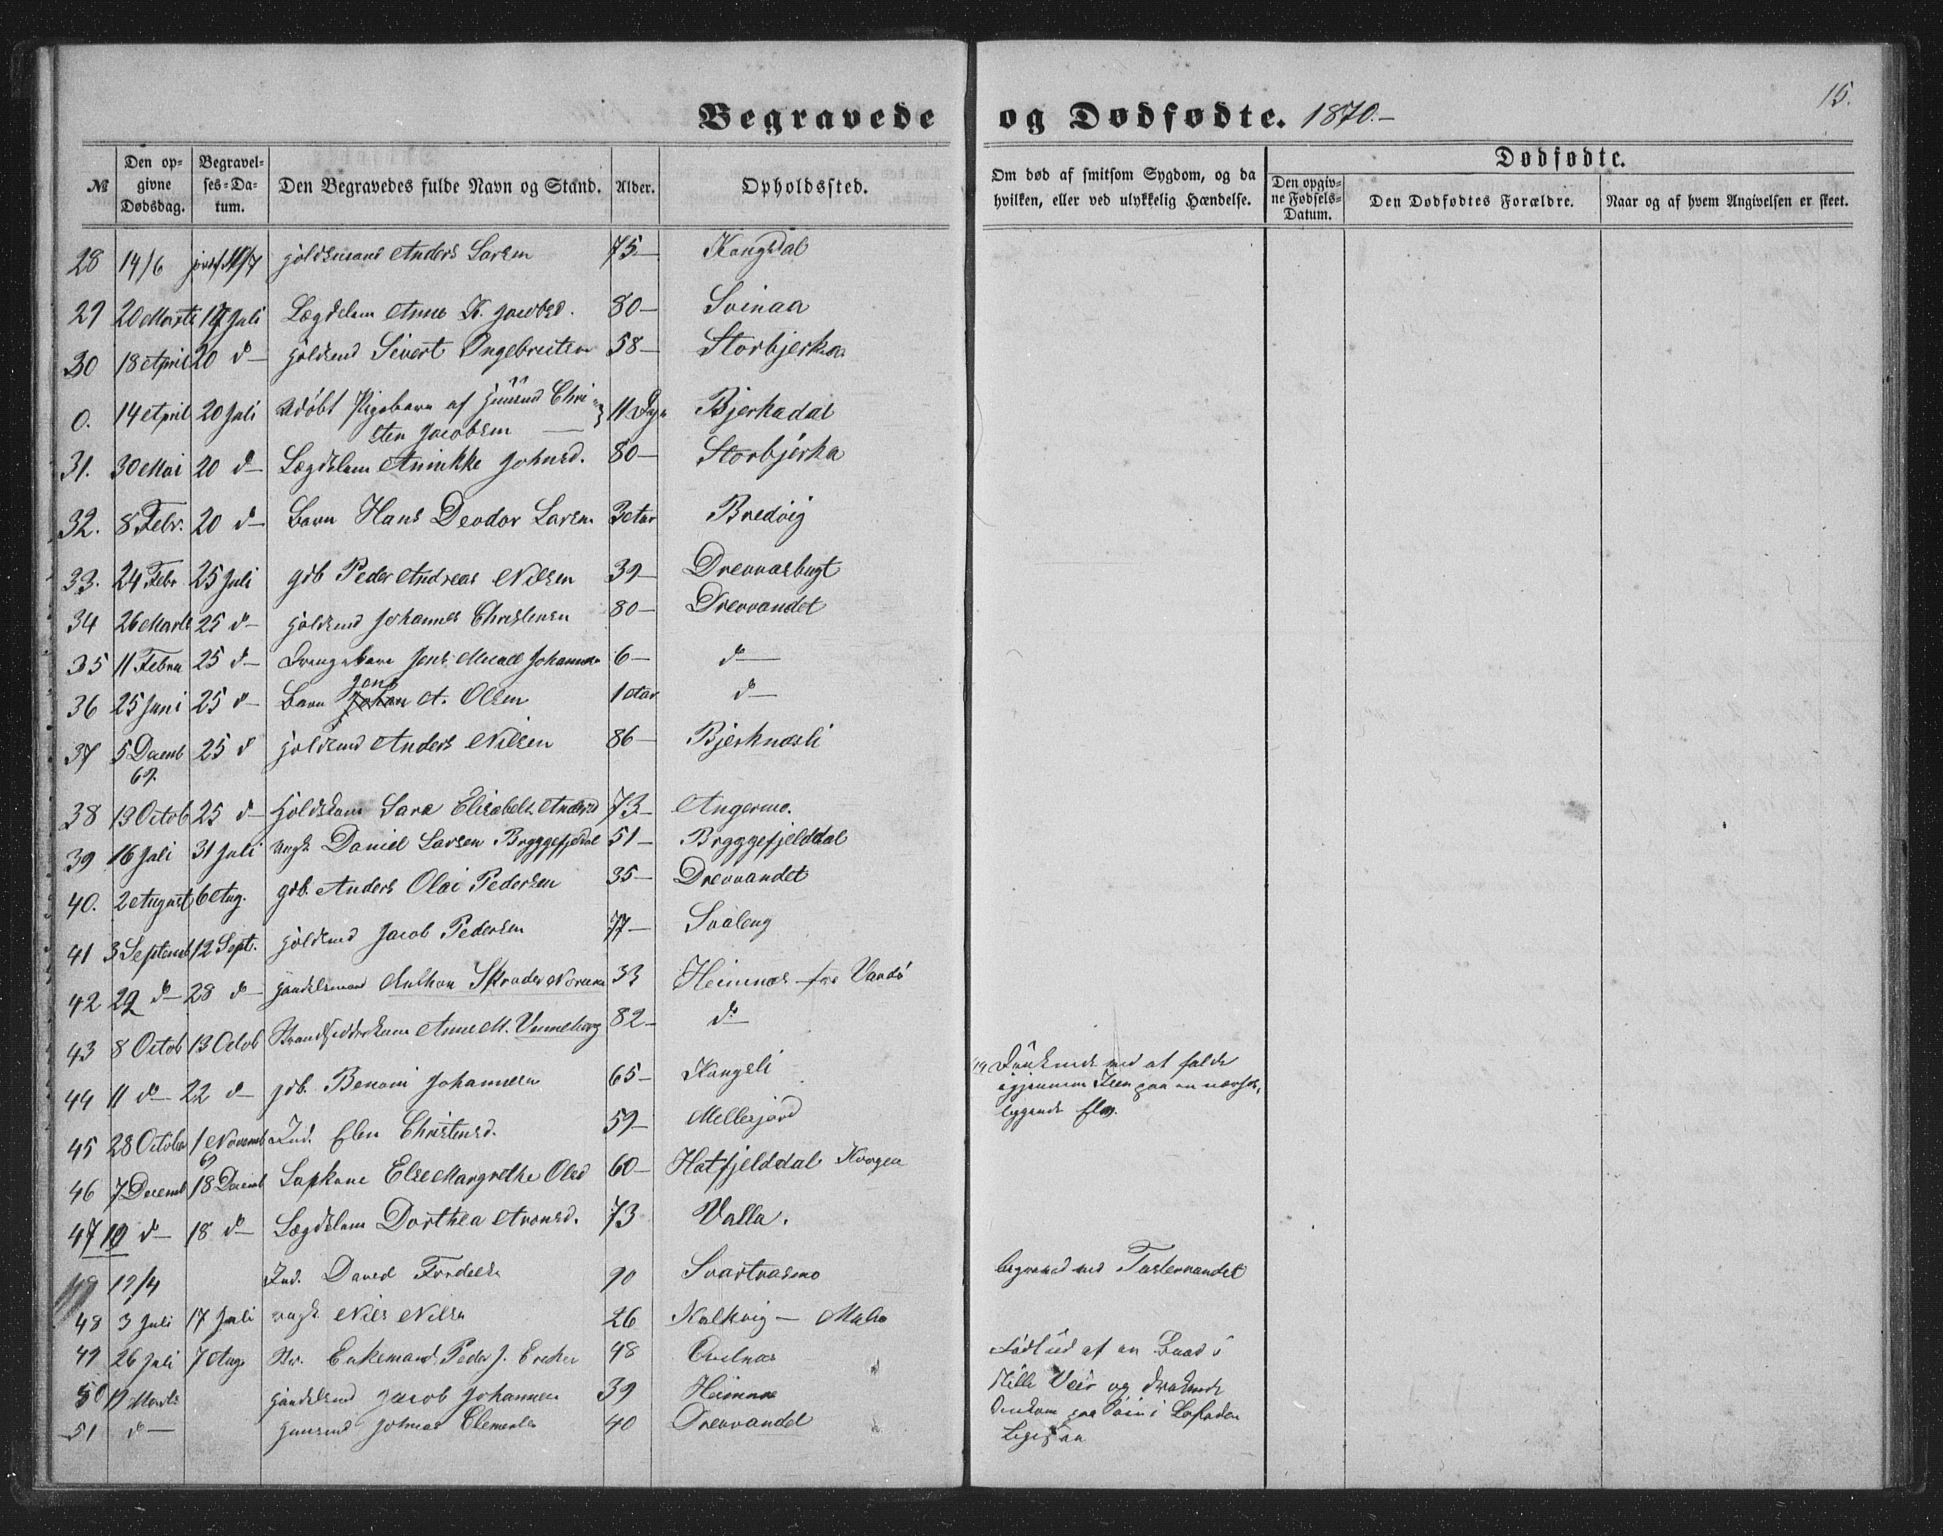 15.
Begravede og Dødfødte. 1870.-
№ Den opgivne Dødsdag. Begravelses-Datum. Den Begravedes fulde Navn og Stand. Alder. Opholdssted. Om død af smitsom Sygdom, og da hvilken, eller ved ulykkelig Hændelse. Dødfødte. Den opgivne Fødsels-Datum. Den Dødfødtes Forældre. Naar og af hvem Angivelsen er skeet.
28 14/6 Anders Larsen 75- Kangsdal
29 20 Marts 17 Juli Lægdslem Anne K. Jacobsd. 80- Svinaa
30 18 April 20 d- Sivert Ingebritsen 58- Storbjerka
0. 14 April 20 Juli udøbt Pigebarn af Huusmd Chri-
sten Jacobsen 11 Dge Bjerkadal
31. 30 Mai 20 d- Lægdslem Annikke Johnsd. 80- Storbjerka
32. 8 Febr. 20 d- Barn Hans Deodor Larsen 3 Aar Bredvig
33. 24 Febr 25 Juli gdb Peder Andreas Nilsen 39- Drevvasbugt
34 26 Marts 25 d- Holdsmd Johannes Christensen 80- Drevvandet
35 11 Febru 25 d- Drengebarn Jens Mikael Johannes 6- d-
36 25 Juni 25 d- Barn Johan Jens A. Olsen 1 Aar d-
37 5 Decemb 69. 25 d Holdsmd Anders Nilsen 86- Bjerknæsli
38 13 Octob 25 d- Holdskone Sara Elisabeth Andersd 73- Angermo.
39 16 Juli 31 Juli ungk. Daniel Larsen Bryggefjeldal 51- Bryggefjelddal
40. 2 August 6 Aug. gdb. Anders Olai Pedersen 35- Drevvandet
41 3 Septemb 12 Sept. Holdsmd Jacob Pedersen 77- Svaleng
42 22 d- 28 d- Handelsmand Anthon Skrøder Norum 33 Hemnæs fra Vardö
43 8 Octob 13 Octob Strandsidderkone Anne M. Unneberg 82- d-
44 11 d- 22 d- gdb. Benoni Johannesen 65- Kangsli
45 28 October 1 Novemb Ind. Elen Christensd. 59- Mellesjord
46 7 Decemb 69 18 Decemb Lapkone Else Margrethe Olsd 60- Hatfjelddal Krogen
47 10 d- 18 d- Lægdslem Dorthea Aronsd. 73 Valla.
12/4 Ind. David Fredriks 90 Svartvasmo begravet ved Tustervandet
48 3 Juli 17 Juli ungk Nils Nilsen 26 Kalkvig - Malm
49 26 Juli 7 Aug Enkemand Peder J. 48
50 12 Marts Handelsmd Jacob Johannesen 39 Hemnæs
51 d- Huusmd Johnas Clements 40 Drevvandet
44 Druknede ved at falde
igjennem Isen paa en nærved-
liggende Elv.
Faldt ud af en Baad i
stille Veir og druknede
Omkom paa Søen i Lofoden
Ligesaa